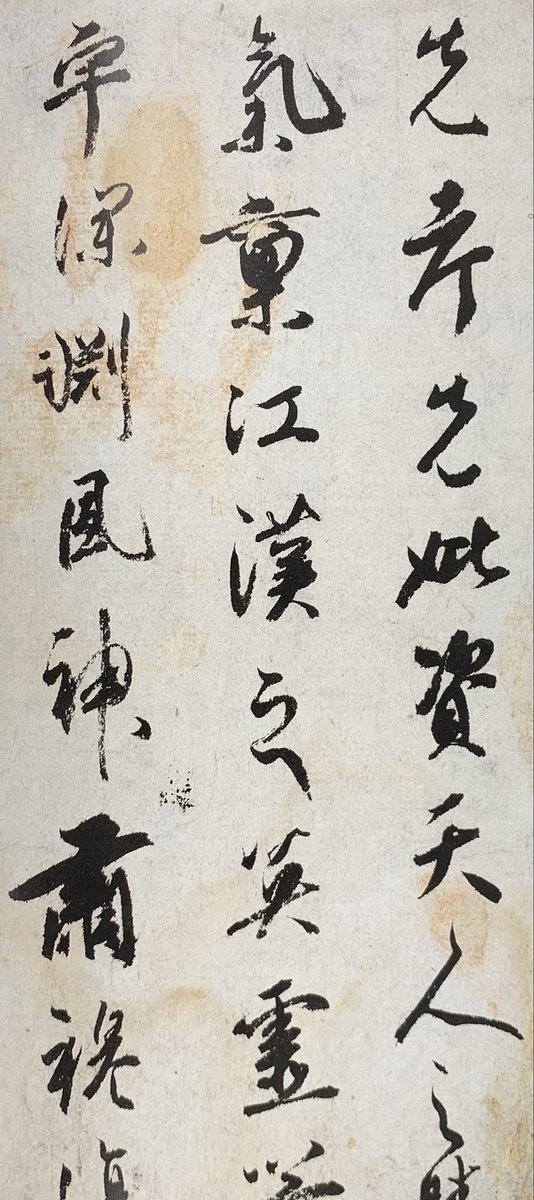 先考先妣資天人之
氣稟江漢之英靈
牢深渊風神肅穆